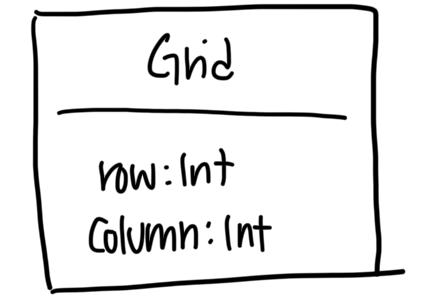 Grid
row: Int
Column: Int